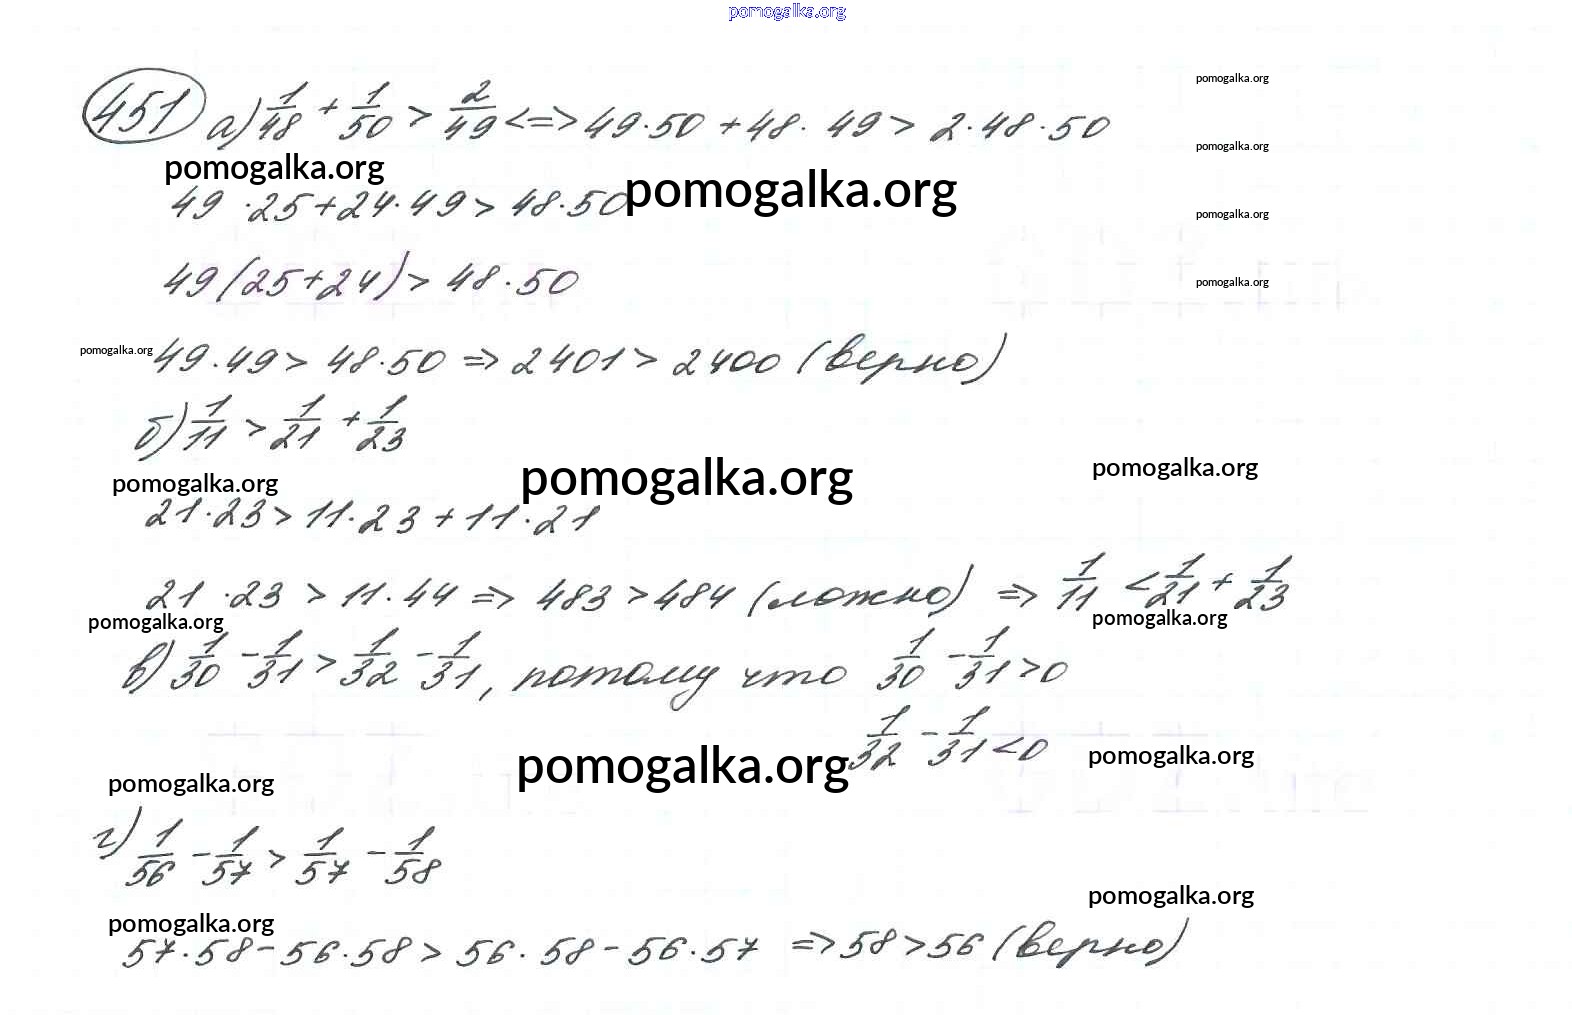 pomogalka.org
pomogalka.org
451 а) 1/48 + 1/50 > 2/49 <=> 49·50 + 48·49 > 2·48·50
pomogalka.org
pomogalka.org pomogalka.org
49·25 + 24·49 > 48·50
pomogalka.org
49(25+24) > 48·50
pomogalka.org
pomogalka.org 49·49 > 48·50 => 2401 > 2400 (верно)
б) 1/11 > 1/21 + 1/23
pomogalka.org pomogalka.org pomogalka.org
21·23 > 11·23 + 11·21
21·23 > 11·44 => 483 > 484 (ложно) => 1/11 < 1/21 + 1/23
pomogalka.org pomogalka.org
в) 1/30 - 1/31 > 1/32 - 1/31, потому что 1/30 - 1/31 > 0
1/32 - 1/31 < 0
pomogalka.org pomogalka.org pomogalka.org
г) 1/56 - 1/57 > 1/57 - 1/58
pomogalka.org pomogalka.org
57·58 - 56·58 > 56·58 - 56·57 => 58 > 56 (верно)